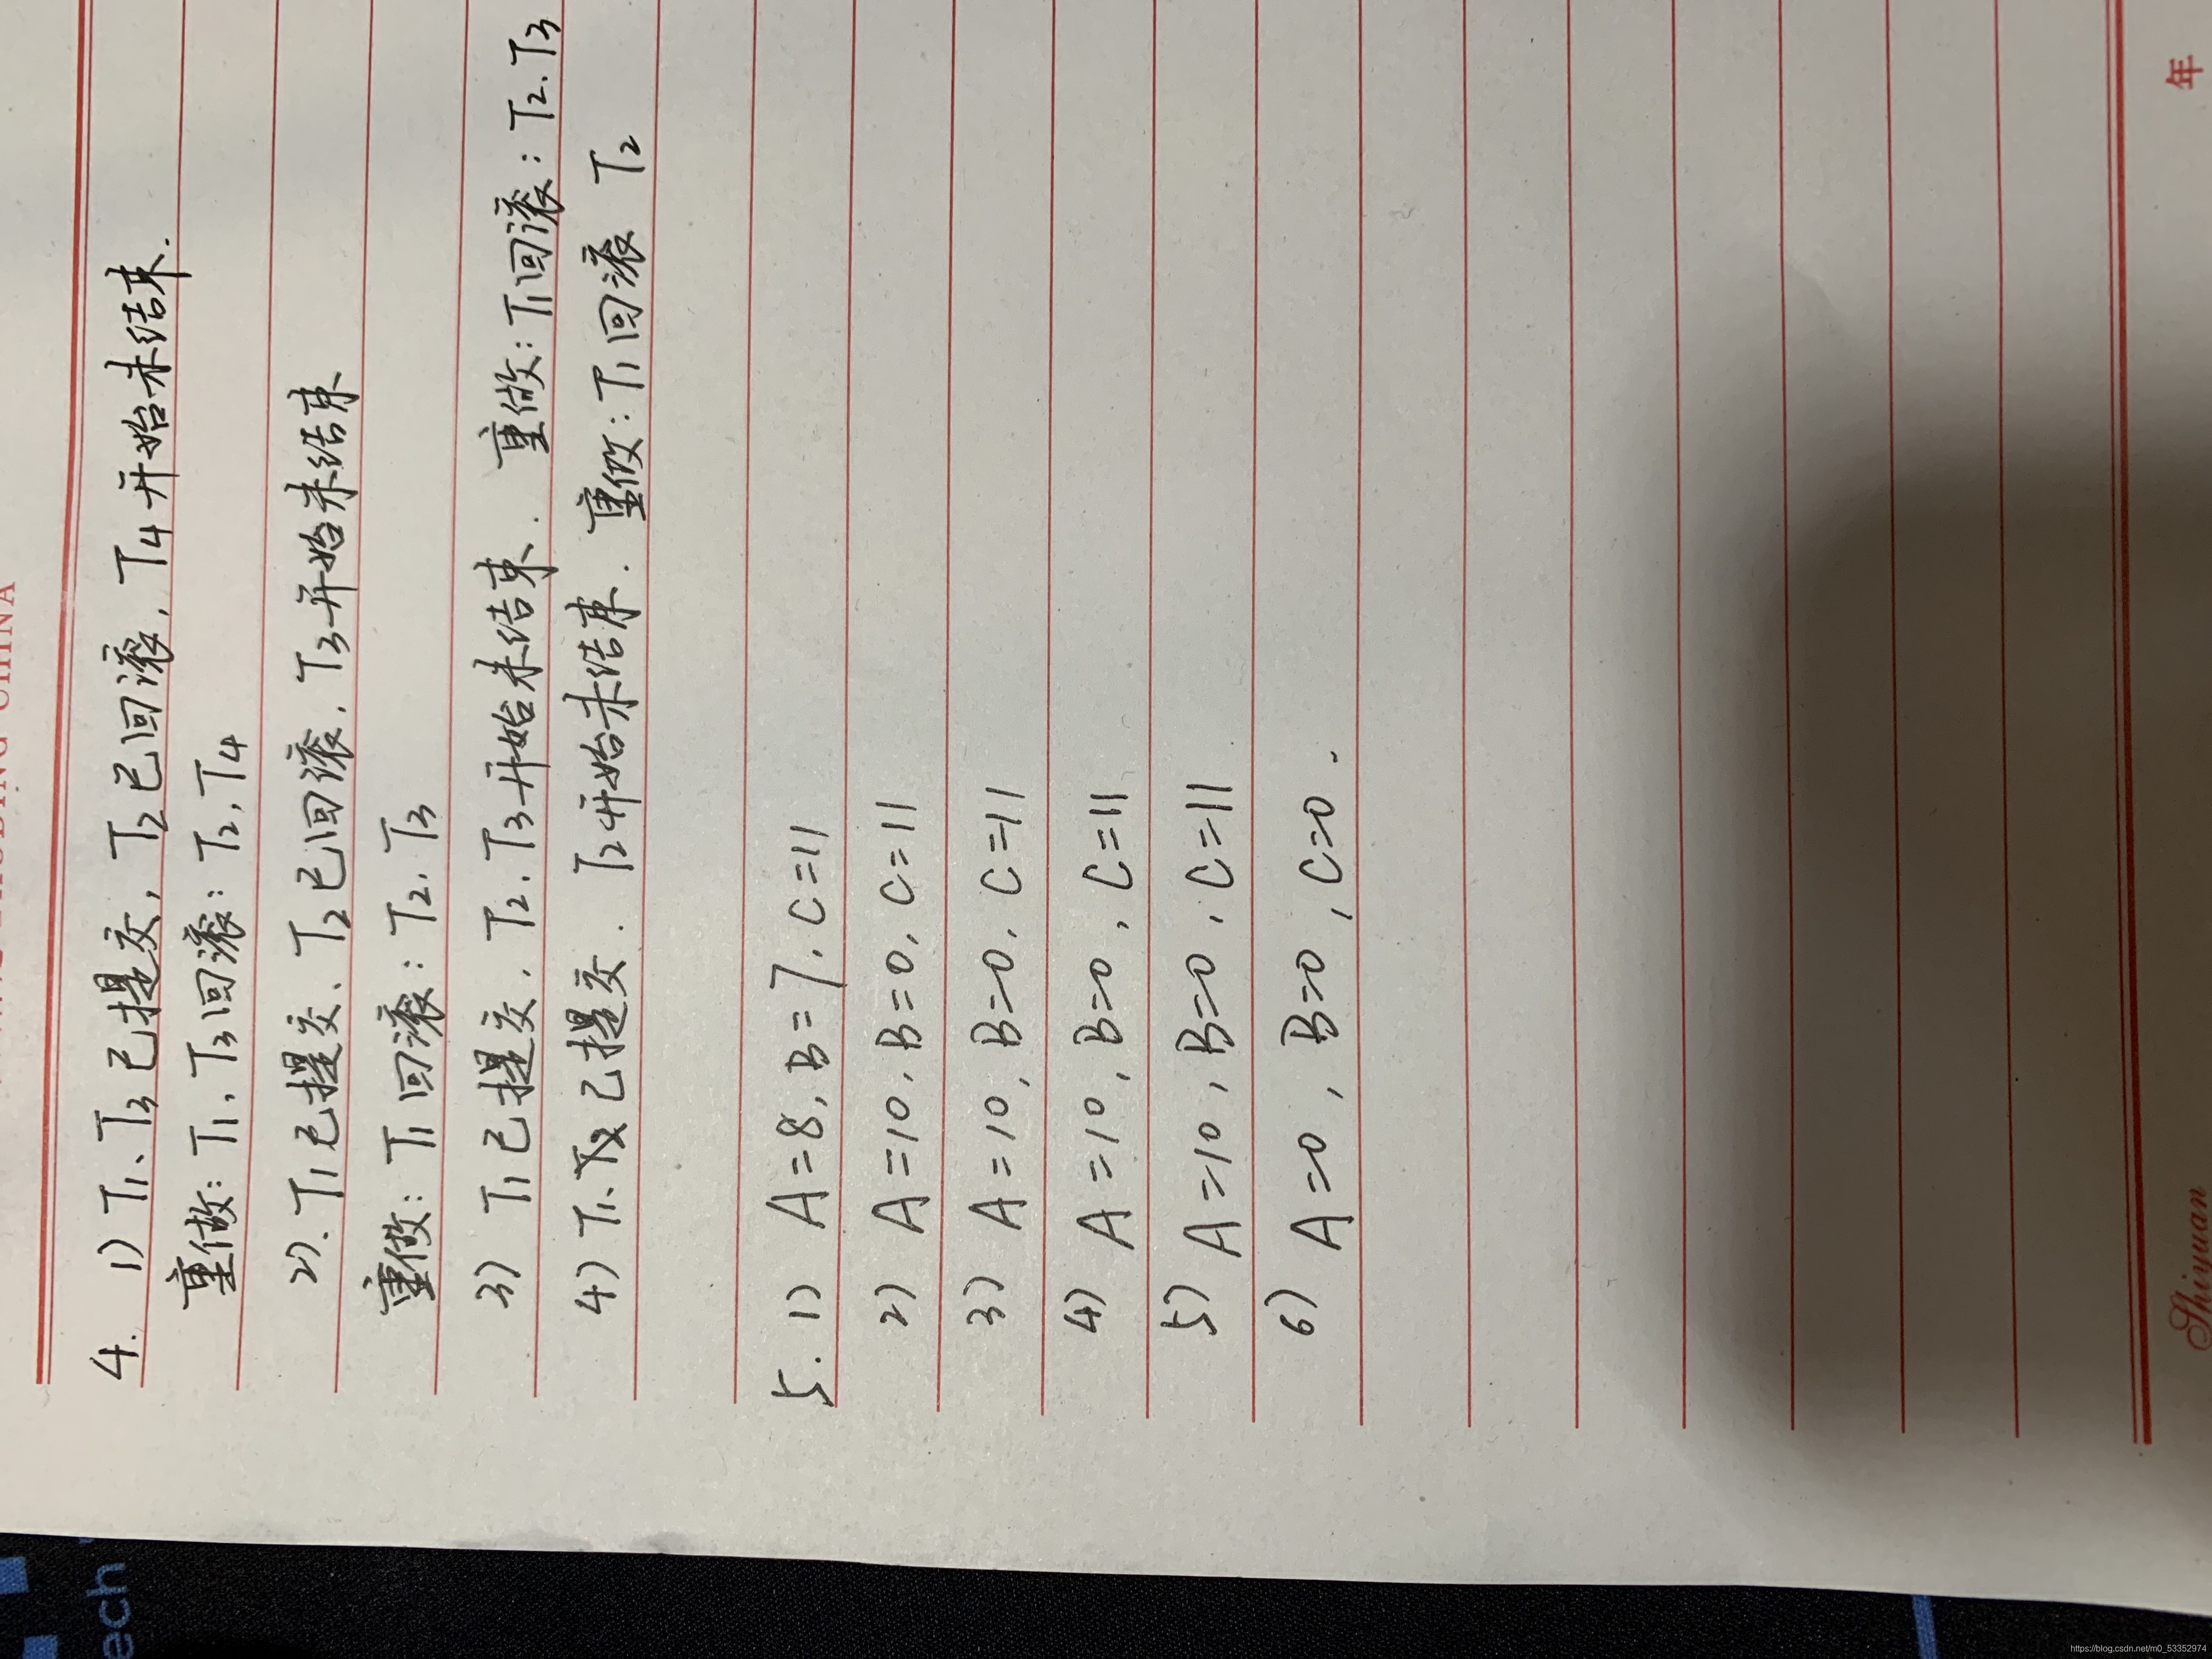 4. 1) T1、T3已提交, T2已回滚, T4开始未结束.
重做: T1, T3回滚: T2, T4
2). T1已提交、T2已回滚, T3开始未结束
重做: T1回滚: T2, T3
3) T1已提交, T2, T3开始未结束. 重做: T1回滚: T2. T3
4) T1、已提交. T2开始未结束. 重做: T1回滚 T2
5. 1) A=8, B=7, C=11
2) A=10, B=0, C=11
3) A=10, B=0, C=11
4) A=10, B=0, C=11
5) A=10, B=0, C=11
6) A=0, B=0, C=0.
Shiyuan
年
ech
https://blog.csdn.net/m0_53352974